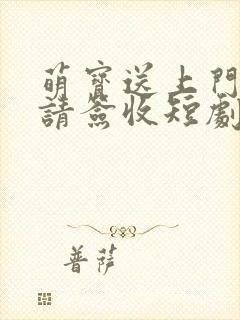 萌寶送上門
請簽收短劇
普薩